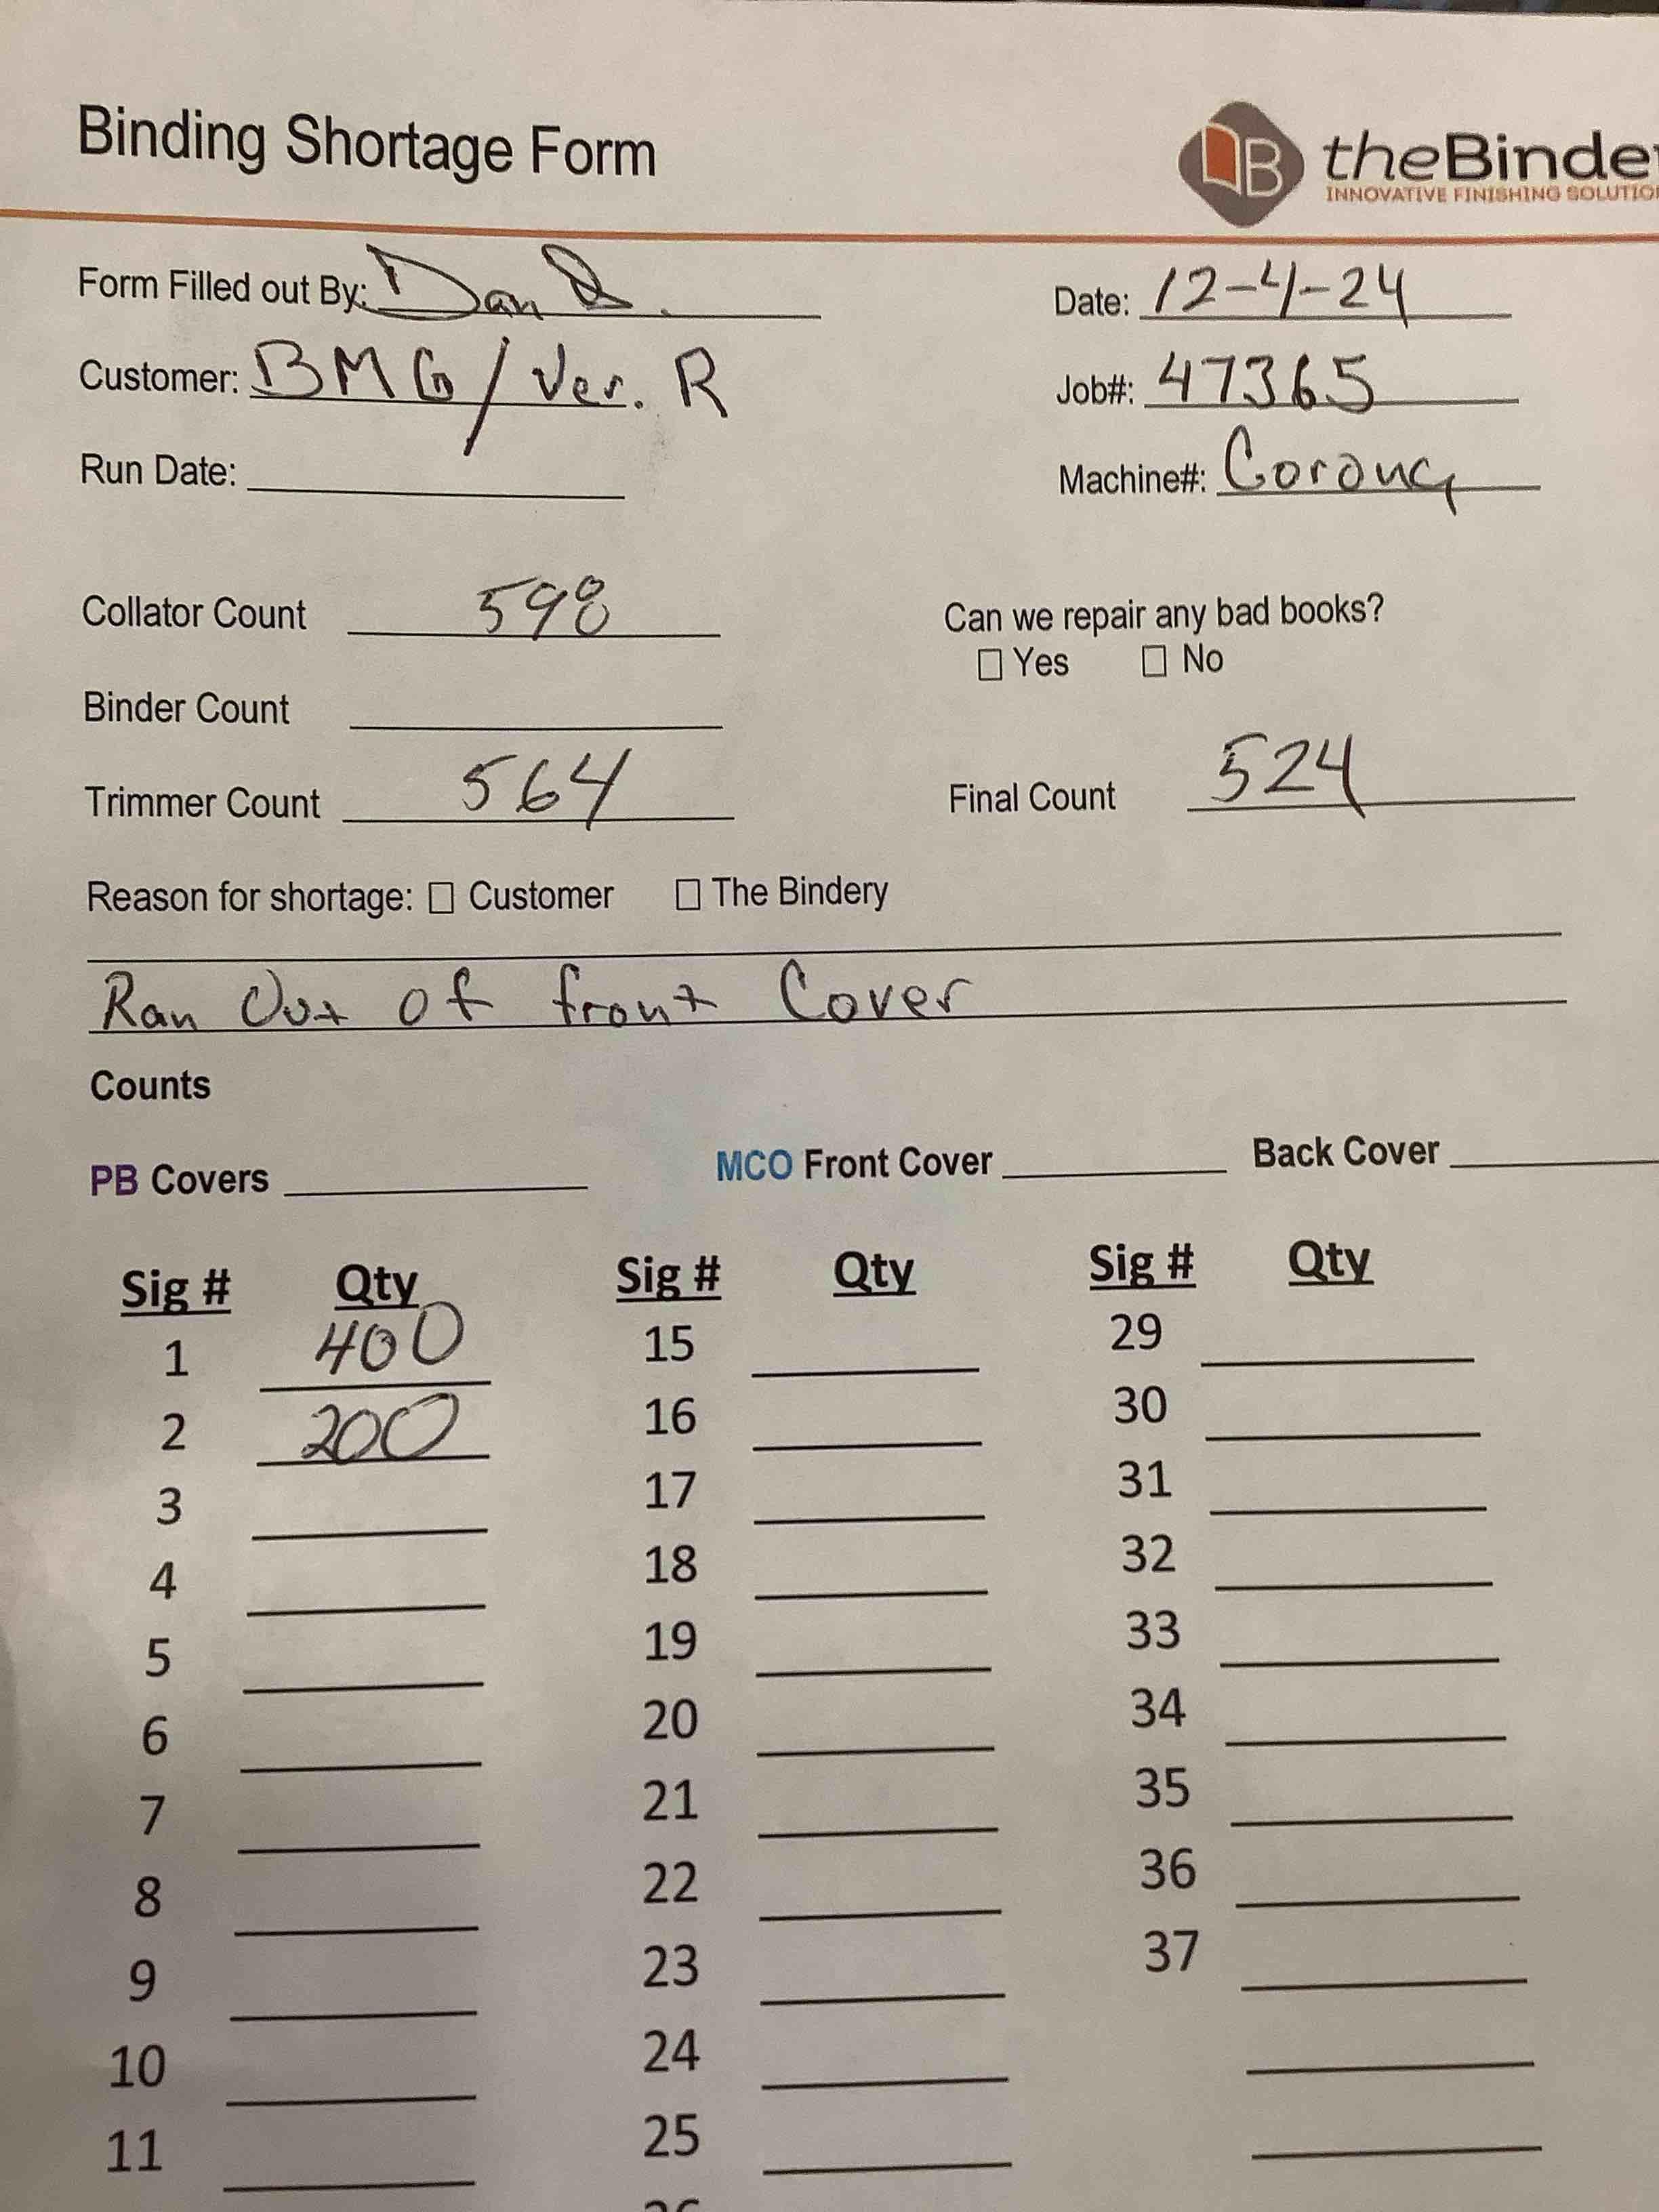 Binding Shortage Form
theBinde
INNOVATIVE FINISHING SOLUTIO
Form Filled out By: Dan
Date: 12-4-24
Customer: BMG/Ver. R
Job#: 47365
Run Date:
Machine#: Corona
Collator Count 598
Can we repair any bad books?
☐ Yes ☐ No
Binder Count
Trimmer Count 564
Final Count 524
Reason for shortage: ☐ Customer ☐ The Bindery
Ran Out of front Cover
Counts
PB Covers MCO Front Cover Back Cover
Sig # Qty Sig # Qty Sig # Qty
1 400 15 29
2 200 16 30
3 17 31
4 18 32
5 19 33
6 20 34
7 21 35
8 22 36
9 23 37
10 24
11 25